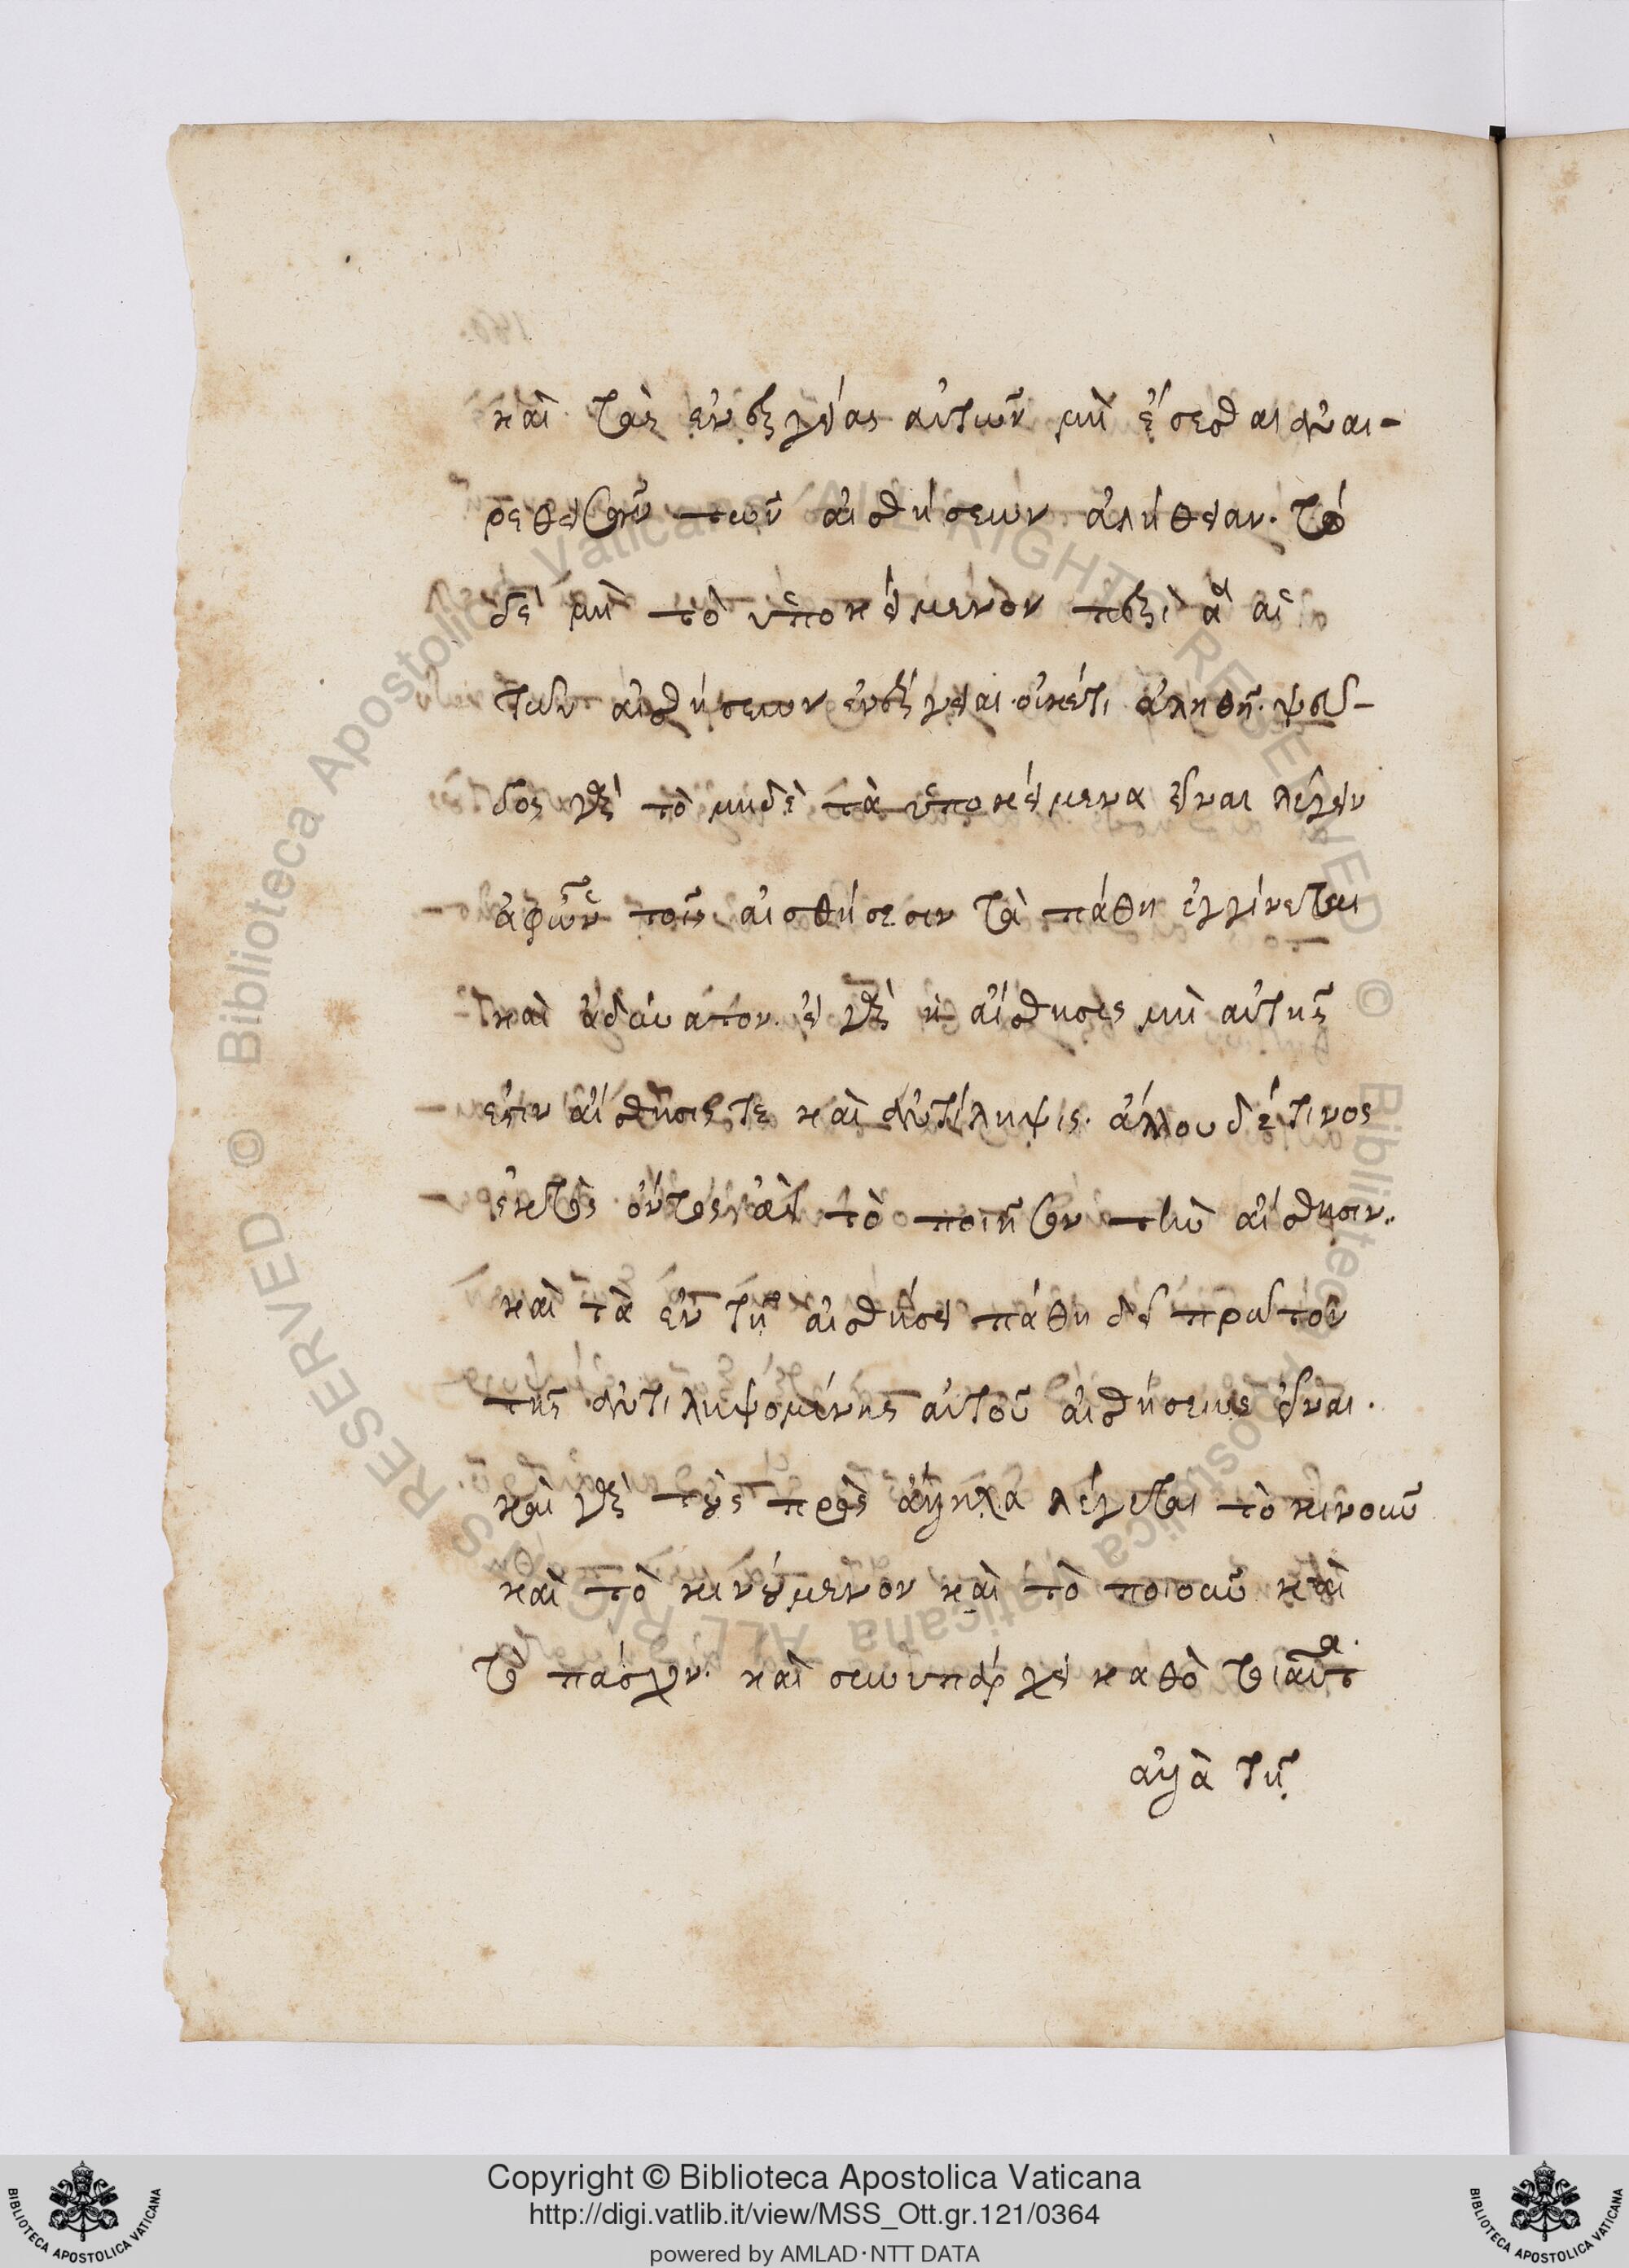 καὶ τὰς ἐνεργείας αὐτῶν μὴ ἔσεσθαι ἀναι-
ρεθεισῶν τῶν αἰσθήσεων ἀλήθειαν. τὸ
δὲ μὴ τὸ ὑποκείμενον περὶ ἃ αἱ
τῶν αἰσθήσεων ἐνέργειαι οὐκέτι ἀληθῆ. ψεῦ-
δος γὰρ τὸ μηδὲ τὰ ὑποκείμενα εἶναι λέγειν
ἀφ' ὧν ταῖς αἰσθήσεσιν τὰ πάθη ἐγγίνεται
καὶ ἀδύνατον. εἰ γὰρ ἡ αἴσθησις μὴ αὐτῆς
ἐστιν αἴσθησίς τε καὶ ἀντίληψις. ἄλλου δέ τινος
ἐκτὸς ὄντος ἀεὶ τὸ ποιῆσον τὴν αἴσθησιν..
καὶ τὰ ἐν τῇ αἰσθήσει πάθη δεῖ πρῶτον
τῆς ἀντιληψομένης αὐτοῦ αἰσθήσεως εἶναι.
καὶ γὰρ ὡς πρὸς ἄλληλα λέγεται τὸ κινοῦν
καὶ τὸ κινούμενον καὶ τὸ ποιοῦν καὶ
τὸ πάσχον. καὶ συνυπάρχει καθὸ τοιαῦτα.
ἀλλὰ τῇ
Copyright © Biblioteca Apostolica Vaticana
http://digi.vatlib.it/view/MSS_Ott.gr.121/0364
powered by AMLAD·NTT DATA